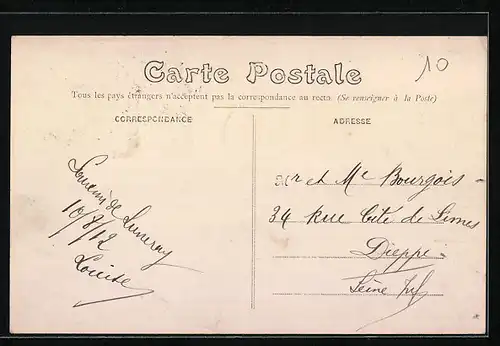 10
Carte Postale
Tous les pays étrangers n'acceptent pas la correspondance au recto. (Se renseigner à la Poste)
CORRESPONDANCE
ADRESSE
Souvenir de Luneray
10/8/12
Louise
Mr et Me Bourgois
34 Rue Cité de Limes
Dieppe
Seine Inf